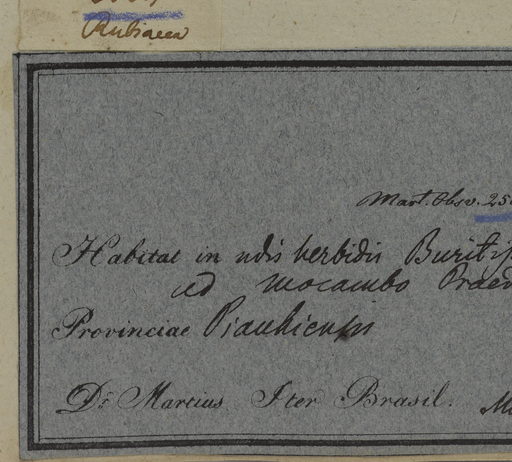 Rubiacea
Mart. Obsv. 25
Habitat in udis herbidis Buritif
ad mocambo Praed
Provinciae Piauhiensis
Dr. Martius Iter Brasil. M